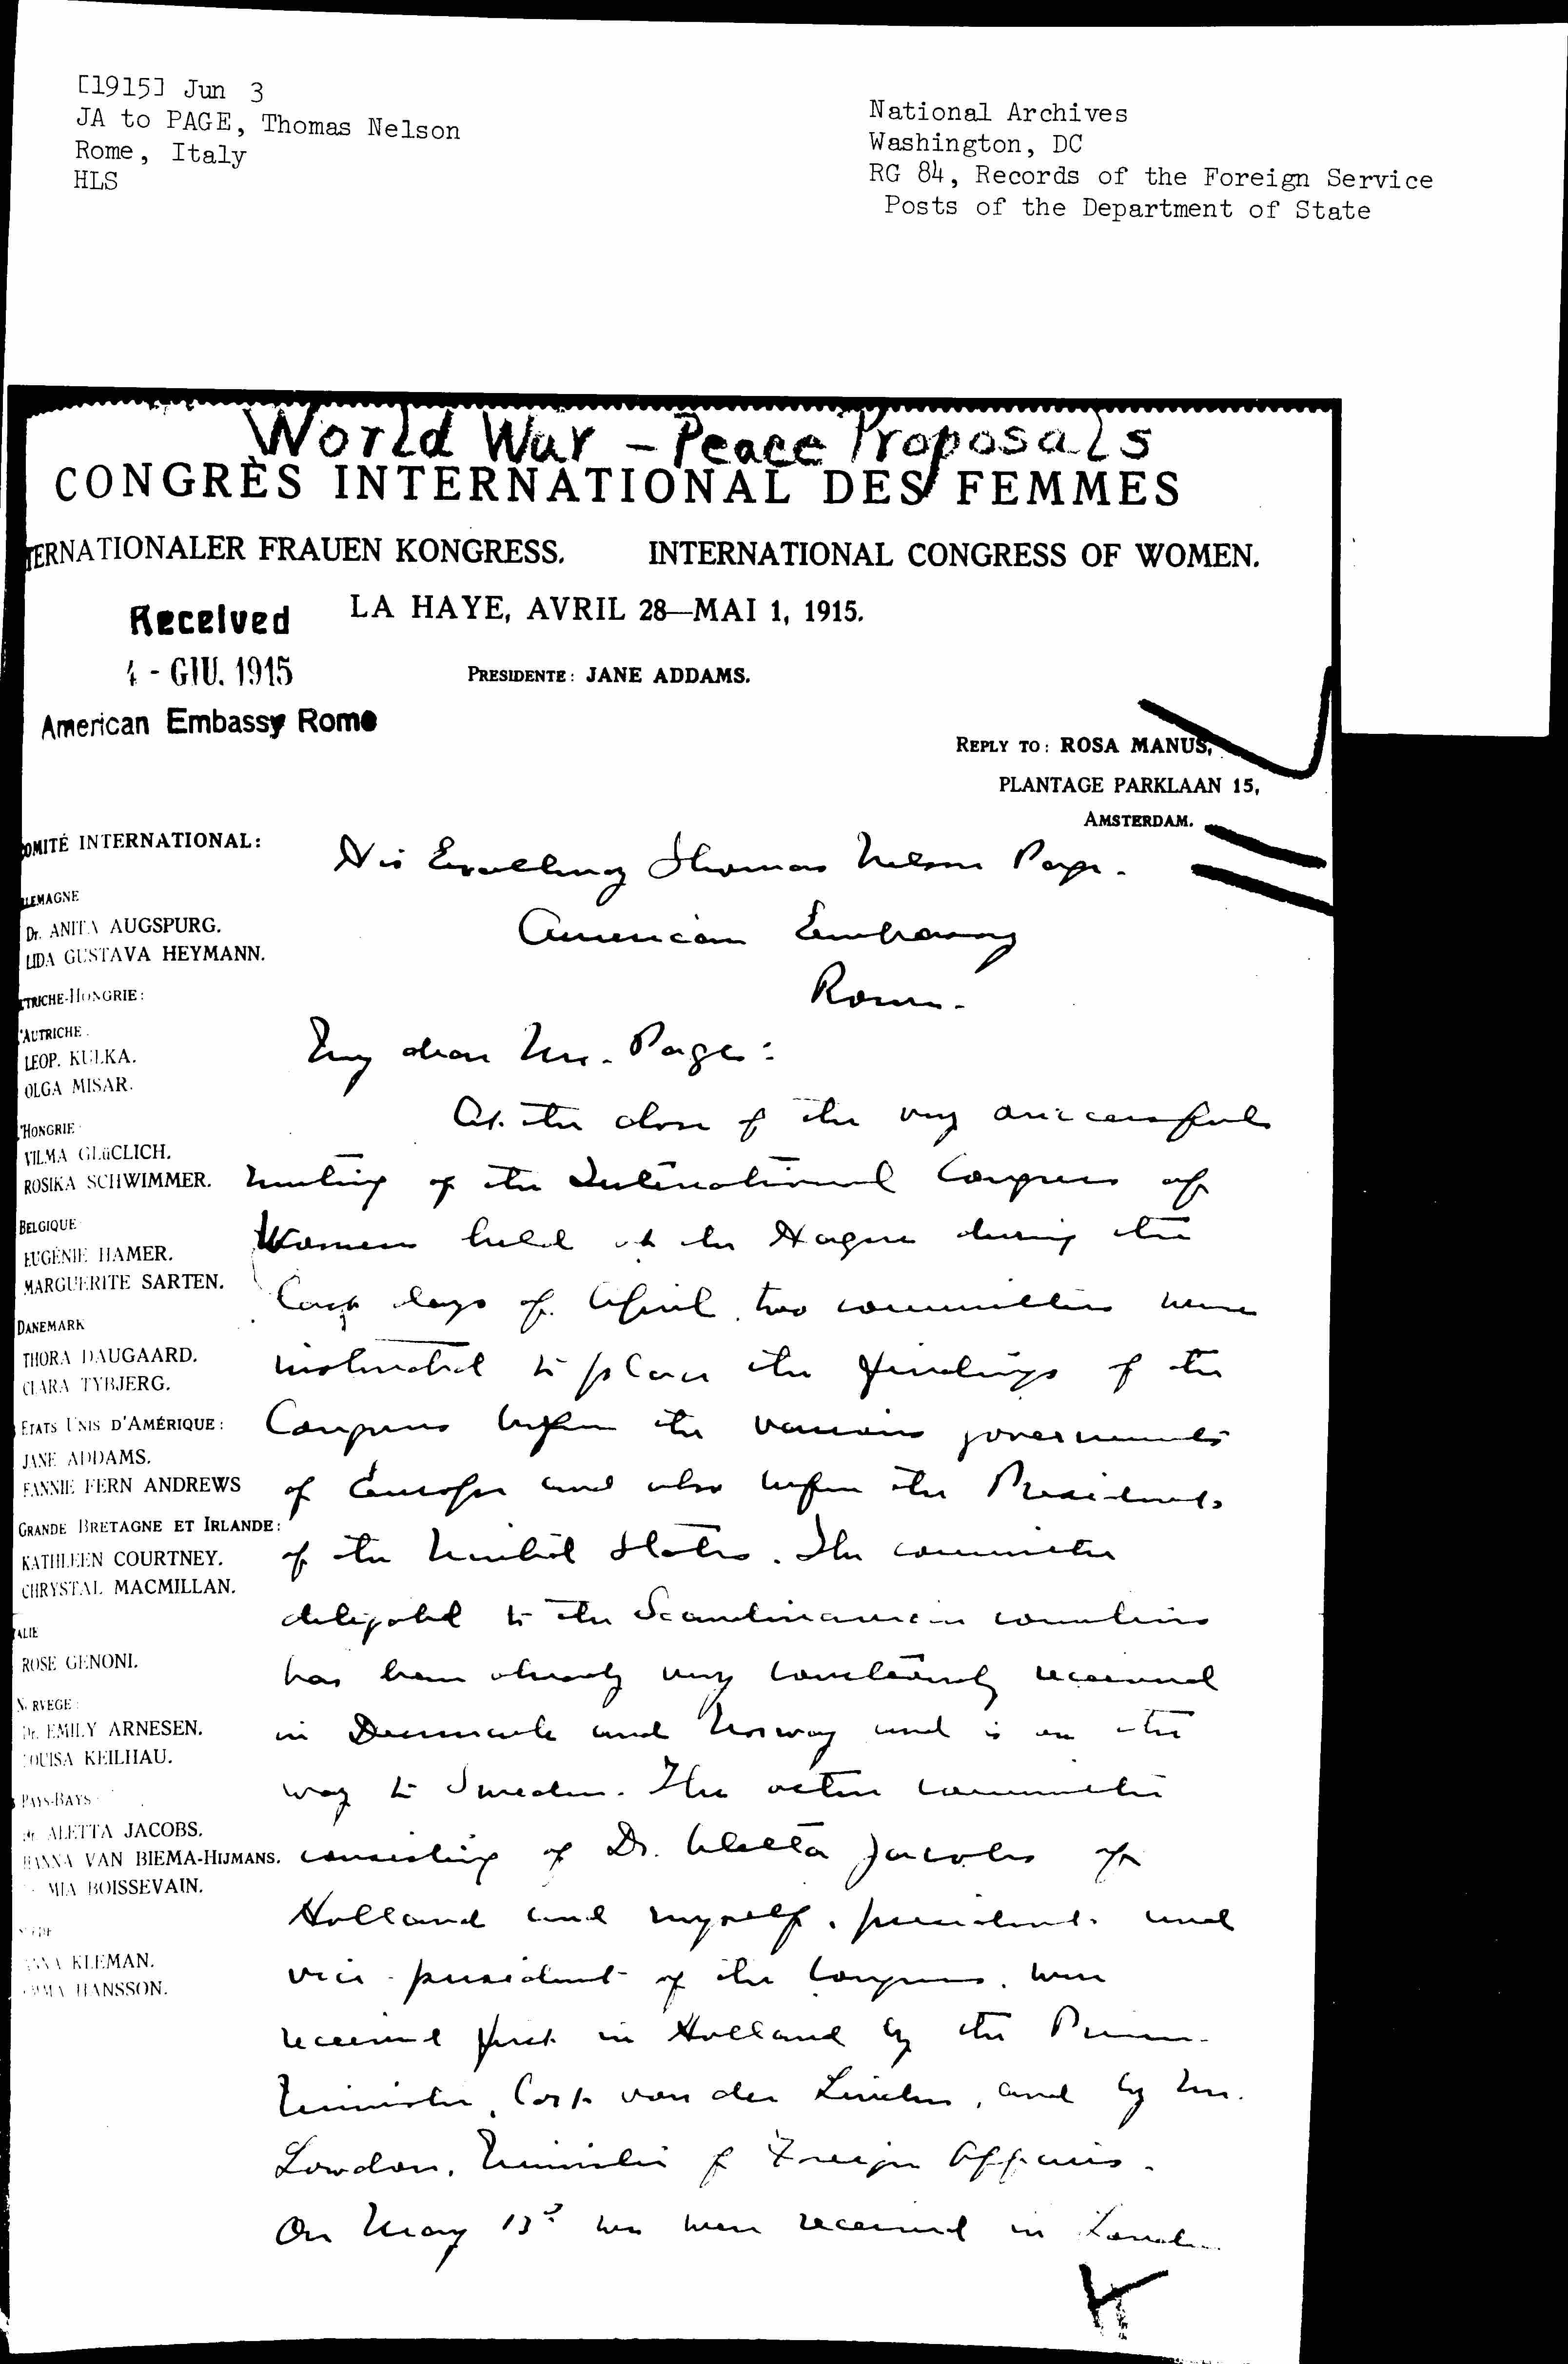 [1915] Jun 3
JA to PAGE, Thomas Nelson
Rome, Italy
HLS
National Archives
Washington, DC
RG 84, Records of the Foreign Service
Posts of the Department of State
World War - Peace Proposals
CONGRÈS INTERNATIONAL DES FEMMES
TERNATIONALER FRAUEN KONGRESS. INTERNATIONAL CONGRESS OF WOMEN.
LA HAYE, AVRIL 28—MAI 1, 1915.
Received
4 - GIU. 1915
American Embassy Rome
PRESIDENTE: JANE ADDAMS.
REPLY TO: ROSA MANUS,
PLANTAGE PARKLAAN 15,
AMSTERDAM.
OMITÉ INTERNATIONAL:
LLEMAGNE
Dr. ANITA AUGSPURG.
LIDA GUSTAVA HEYMANN.
TRICHE-HONGRIE:
AUTRICHE.
LEOP. KULKA.
OLGA MISAR.
HONGRIE
VILMA GLüCLICH.
ROSIKA SCHWIMMER.
BELGIQUE
EUGÉNIE HAMER.
MARGUERITE SARTEN.
DANEMARK
THORA DAUGAARD.
CLARA TYBJERG.
ETATS UNIS D'AMÉRIQUE:
JANE ADDAMS.
FANNIE FERN ANDREWS
GRANDE BRETAGNE ET IRLANDE:
KATHLEEN COURTNEY.
CHRYSTAL MACMILLAN.
ALIE
ROSE GENONI.
RVEGE:
Dr. EMILY ARNESEN.
OUISA KEILHAU.
PAYS-BAYS
Dr ALETTA JACOBS.
HANNA VAN BIEMA-HIJMANS.
MIA BOISSEVAIN.
KLEMAN.
HANSSON.
His Excellency Thomas Nelson Page.
American Embassy
Rome.
My dear Mr. Page:
At the close of the very successful
meeting of the International Congress of
Women held at the Hague during the
last days of April, two committees were
instructed to place the findings of the
Congress before the various governments
of Europe and also before the President
of the United States. The committee
delegated to the Scandinavian countries
has been already very courteously received
in Denmark and Norway and is on the
way to Sweden. The other committee
consisting of Dr. Aletta Jacobs of
Holland and myself, president and
vice-president of the Congress, were
received first in Holland by the Prime
Minister, Cort van der Linden, and by Mr.
Loudon, Minister of Foreign Affairs.
On May 13 we were received in London